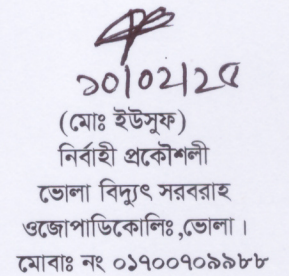 ১০/০২/২৫
(মোঃ ইউসুফ)
নির্বাহী প্রকৌশলী
ভোলা বিদ্যুৎ সরবরাহ
ওজোপাডিকোলিঃ,ভোলা ।
মোবাঃ নং ০১৭০০৭০৯৯৮৮